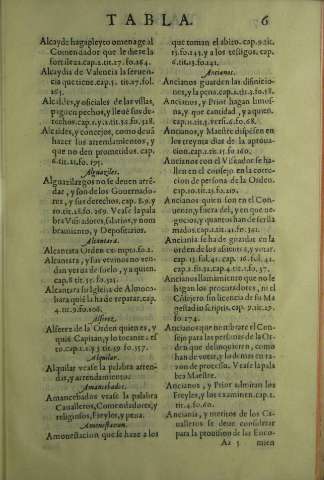 TABLA. 6
Alcayde haga pleyto omenage al
Comendador que le diere la
fortaleza. cap.2.tit.17.fo.264.
Alcaydia de Valencia la seruen-
cia que tiene. cap.5. tit.27.fol.
265.
Alcaldes, y oficiales de las villas,
y lleuē sus de-
rechos. cap.1.y 2.tit.32.fo.318.
Alcaldes, y concejos, como deuā
hazer los arrendamientos, y
que no den prometidos. cap.
6.tit.11.fo. 175.
Alguaziles.
Alguazilazgos no se deuen arrē-
dar, y son de los Gouernado-
res, y sus derechos. cap. 8.9.y
10.tit.28.fo. 269. Vease la pala
bra Visitadores, salarios, y nom
bramiento, y Depositarios.
Alcantara.
Alcantara Orden
Alcantara, y sus vezinos no ven
dan yeruas de suelo, y a quien.
cap.8.tit.35.fo.325.
Alcantara su Iglesia de Almoco-
bara quiē la ha de reparar. cap.
4.tit.9.fo.106.
Alferez.
Alferez de la Orden quien es, y
que Capitan, y lo tocante a es
to. cap.1.2.y 3.tit.59.fo.357.
Alquilar.
Alquilar vease la palabra arren-
dar, y arrendamientos.
Amancebados.
Amancebados vease la palabra
Caualleros, Comendadores, y
religiosos, Freyles, y pena.
Amonestacion.
Amonestacion que se haze a los
que toman el abito. cap.9.tit.
13.fo.143. y a los testigos. cap.
6.tit.13.fo.141.
Ancianos.
Ancianos guarden las difinicio-
nes, y la pena. cap.2.tit.4.fo.58.
Ancianos, y Prior hagan limos-
na, y que cantidad, y a quien.
cap.11.tit.5. vers.6.fo.68.
Ancianos, y Maestre dispēsen en
los treynta dias de la aproua-
cion. cap.2.tit.15.fo 160.
Ancianos con el Visitador se ha-
llen en el consejo en la correc-
cion de persona de la Orden.
cap.16.tit.15.fo.219.
Ancianos quien son en el Con-
uento, y fuera del, y en que ne-
gocios, y quantos han de ser lla
mados. cap.1.tit.45.fo.341.
Anciania se ha de guardar en la
orden de los assientos, y votar.
cap. 13. fol. 41. cap. 16. fol. 42.
cap.2.fo.31.cap.4.tit.1.fo.37.
Ancianos llamamiento que no le
hagan los procuradores, ni el
Cōsejo sin licencia de su Ma
gestad in scriptis. cap. 7. tit.27.
fo.274.
Ancianos que nombrare el Con-
sejo para las personas de la Or-
den que delinquieren, como
han de votar, y lo demas en ra-
zon de processo. Vease la pala
bra Maestre.
Ancianos, y Prior admitan los
Freyles, y los examinen. cap.2.
tit.4.fo.60.
Anciania, y meritos de los Ca-
ualleros se deue considerar
para la prouision de las Enco-
Aa 5 mien